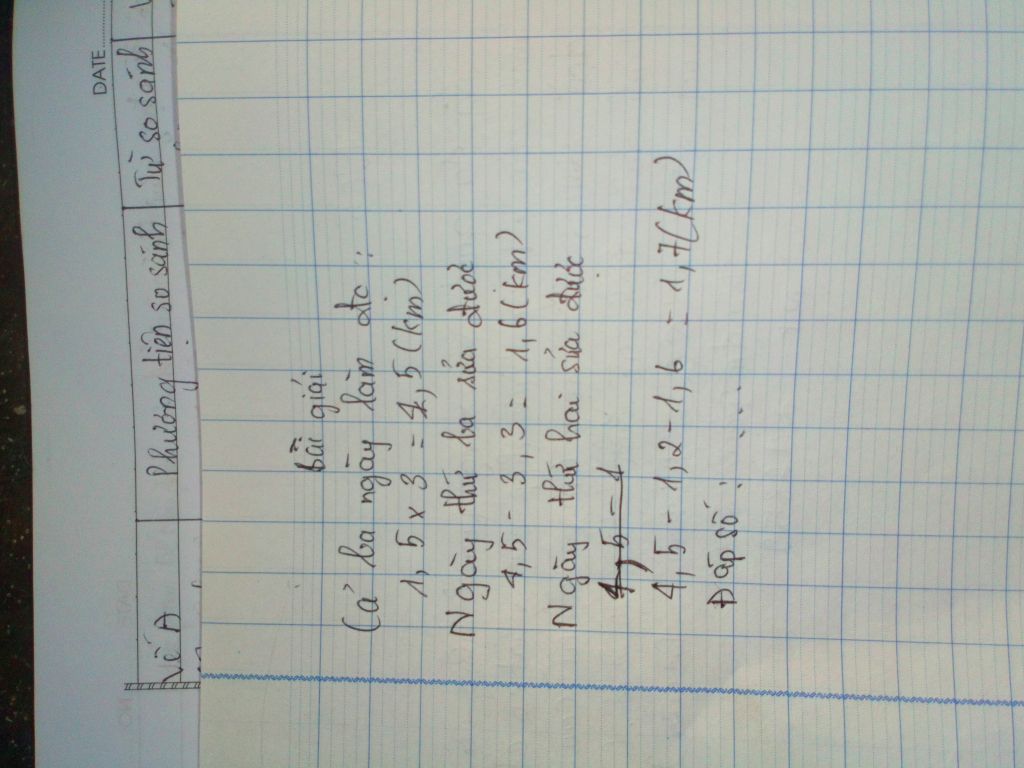 DATE
Vế A Phương tiện so sánh Từ so sánh
bài giải
Cả ba ngày làm đc :
1,5 x 3 = 4,5 (km)
Ngày thứ ba sửa được
4,5 - 3,3 = 1,6 (km)
Ngày thứ hai sửa được
4,5 = 1
4,5 - 1,2 - 1,6 = 1,7 (km)
Đáp số : . . .